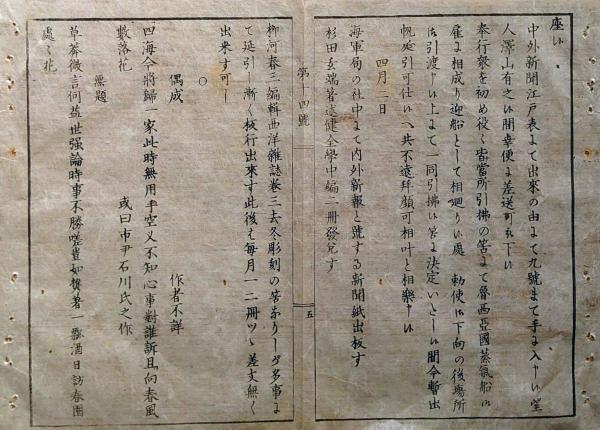 座候
中外新聞江戸表にて出來の由にて九號まて手に入申候望
人澤山有之候間幸便に差送可被下候
奉行衆を初め役々皆當所引拂の筈にて魯西亞國蒸氣船御
雇に相成り迎船として相廻り候處　勅使御下向の後塲所
御引渡し候上にて一同引拂候筈に決定いたし候間今暫出
帆延引可仕候へ共不遠拜顔可相叶と相樂申候
四月二日
海軍局の社中にて内外新報と號する新聞紙出板す
杉田玄端著健全學中編二冊發兌す
第十四號　五
柳河春三編輯西洋雜誌卷三去冬彫刻の筈なりしが多事に
て延引し漸く校行出來す此後は毎月一二冊ツヽ差支無く
出來す可し
○
偶成　作者不詳
四海今將歸一家此時無用手空叉不知心事對誰訴且向春風
數落花　或曰市尹石川氏之作
無題
草莽微言何益世强論時事不勝嗟豈如攜著一瓢酒日訪春園
處々花